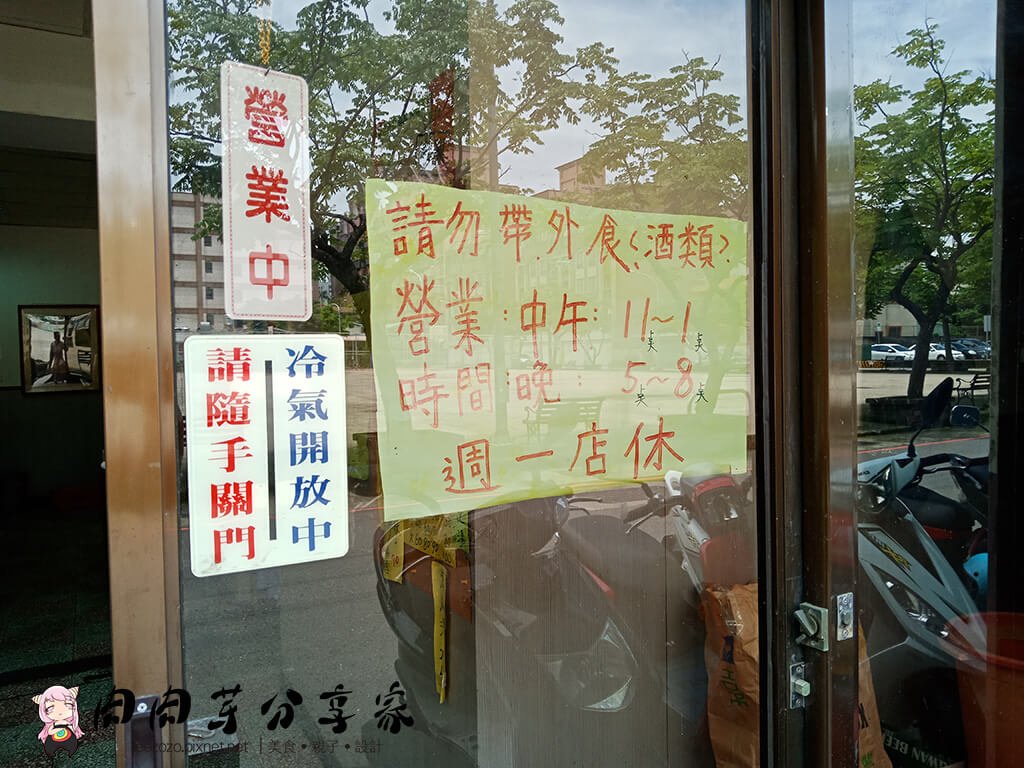 營業中
冷氣開放中
請隨手關門
請勿帶外食(酒類)
營業時間
中午: 11点~1点
晚: 5点~8点
週一店休
肉肉芽分享家
leezozo.pixnet.net | 美食•親子•設計